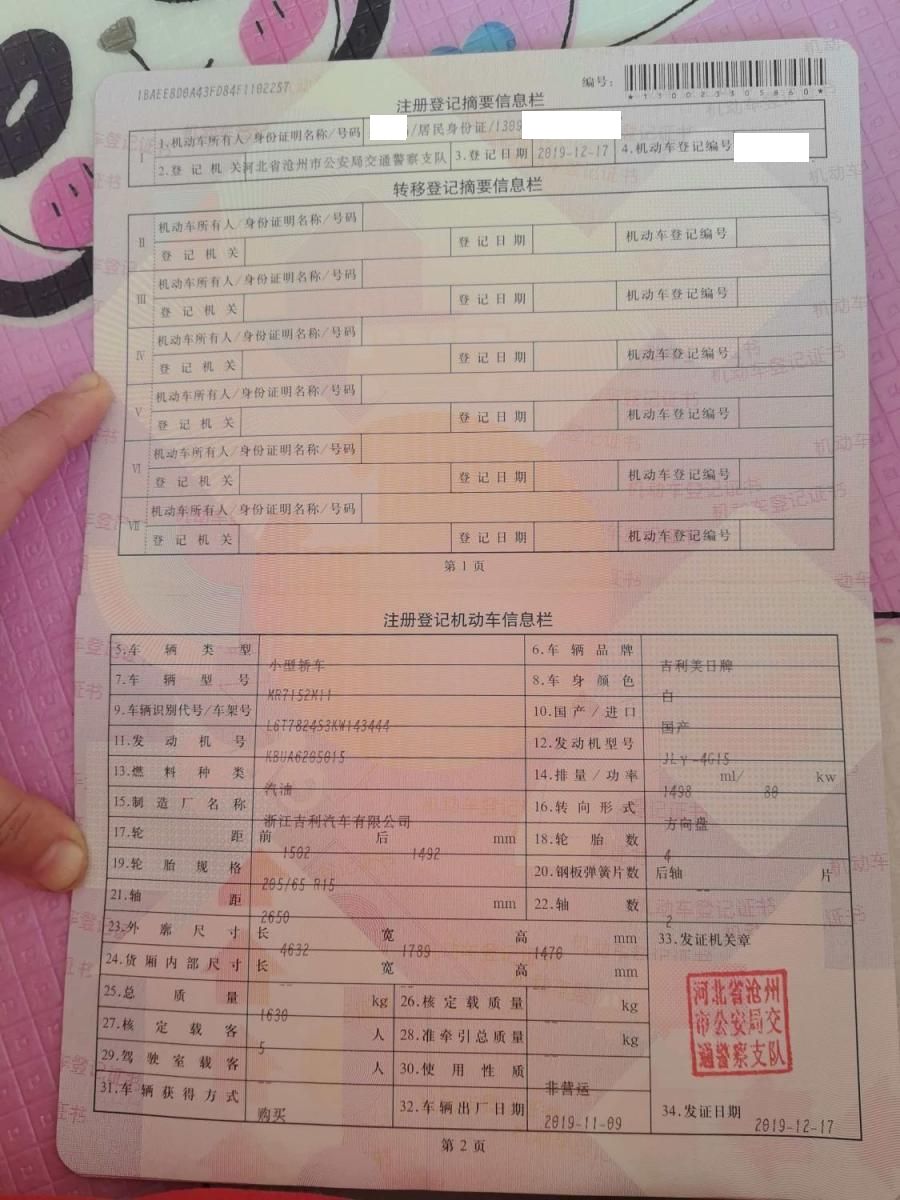 1BAEE8D0A43FD84F1102257
编号：
*130023305860*
注册登记摘要信息栏
I 1.机动车所有人/身份证明名称/号码 /居民身份证/1309
2.登记机关 河北省沧州市公安局交通警察支队 3.登记日期 2019-12-17 4.机动车登记编号
转移登记摘要信息栏
II 机动车所有人/身份证明名称/号码
登记机关 登记日期 机动车登记编号
III 机动车所有人/身份证明名称/号码
登记机关 登记日期 机动车登记编号
IV 机动车所有人/身份证明名称/号码
登记机关 登记日期 机动车登记编号
V 机动车所有人/身份证明名称/号码
登记机关 登记日期 机动车登记编号
VI 机动车所有人/身份证明名称/号码
登记机关 登记日期 机动车登记编号
VII 机动车所有人/身份证明名称/号码
登记机关 登记日期 机动车登记编号
第1页
注册登记机动车信息栏
5.车辆类型 小型轿车 6.车辆品牌 吉利美日牌
7.车辆型号 MR7152M11 8.车身颜色 白
9.车辆识别代号/车架号 L6T7824S3KW143444 10.国产/进口 国产
11.发动机号 KBUA6205015 12.发动机型号 JLγ-4G15
13.燃料种类 汽油 14.排量/功率 1498 ml/ 80 kw
15.制造厂名称 浙江吉利汽车有限公司 16.转向形式 方向盘
17.轮距 前 1502 后 1492 mm 18.轮胎数 4
19.轮胎规格 205/65 R15 20.钢板弹簧片数 后轴 -- 片
21.轴距 2650 mm 22.轴数 2
23.外廓尺寸 长 4632 宽 1789 高 1470 mm 33.发证机关章
24.货厢内部尺寸 长 -- 宽 -- 高 -- mm
25.总质量 1630 kg 26.核定载质量 -- kg
27.核定载客 5 人 28.准牵引总质量 -- kg
29.驾驶室载客 -- 人 30.使用性质 非营运
31.车辆获得方式 购买 32.车辆出厂日期 2019-11-09 34.发证日期 2019-12-17
河北省沧州
市公安局交
通警察支队
第2页